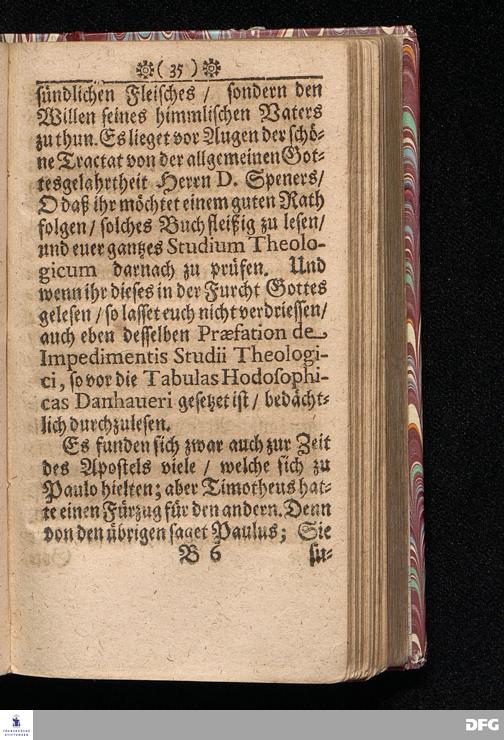 ( 35 )
sündlichen Fleisches / sondern den
Willen seines himmlischen Vaters
zu thun. Es lieget vor Augen der schö-
ne Tractat von der allgemeinen Got-
tesgelahrtheit Herrn D. Speners/
O daß ihr möchtet einem guten Rath
folgen / solches Buch fleißig zu lesen/
und euer gantzes Studium Theolo-
gicum darnach zu prüfen. Und
wenn ihr dieses in der Furcht Gottes
gelesen / so lasset euch nicht verdriessen/
auch eben desselben Præfation de
Impedimentis Studii Theologi-
ci, so vor die Tabulas Hodosophi-
cas Danhaueri gesetzet ist / bedächt-
lich durchzulesen.
Es funden sich zwar auch zur Zeit
des Apostels viele / welche sich zu
Paulo hielten; aber Timotheus hat-
te einen Fürzug für den andern. Denn
von den übrigen saget Paulus; Sie
B 6 su-
FRANCKESCHE
STIFTUNGEN
DFG